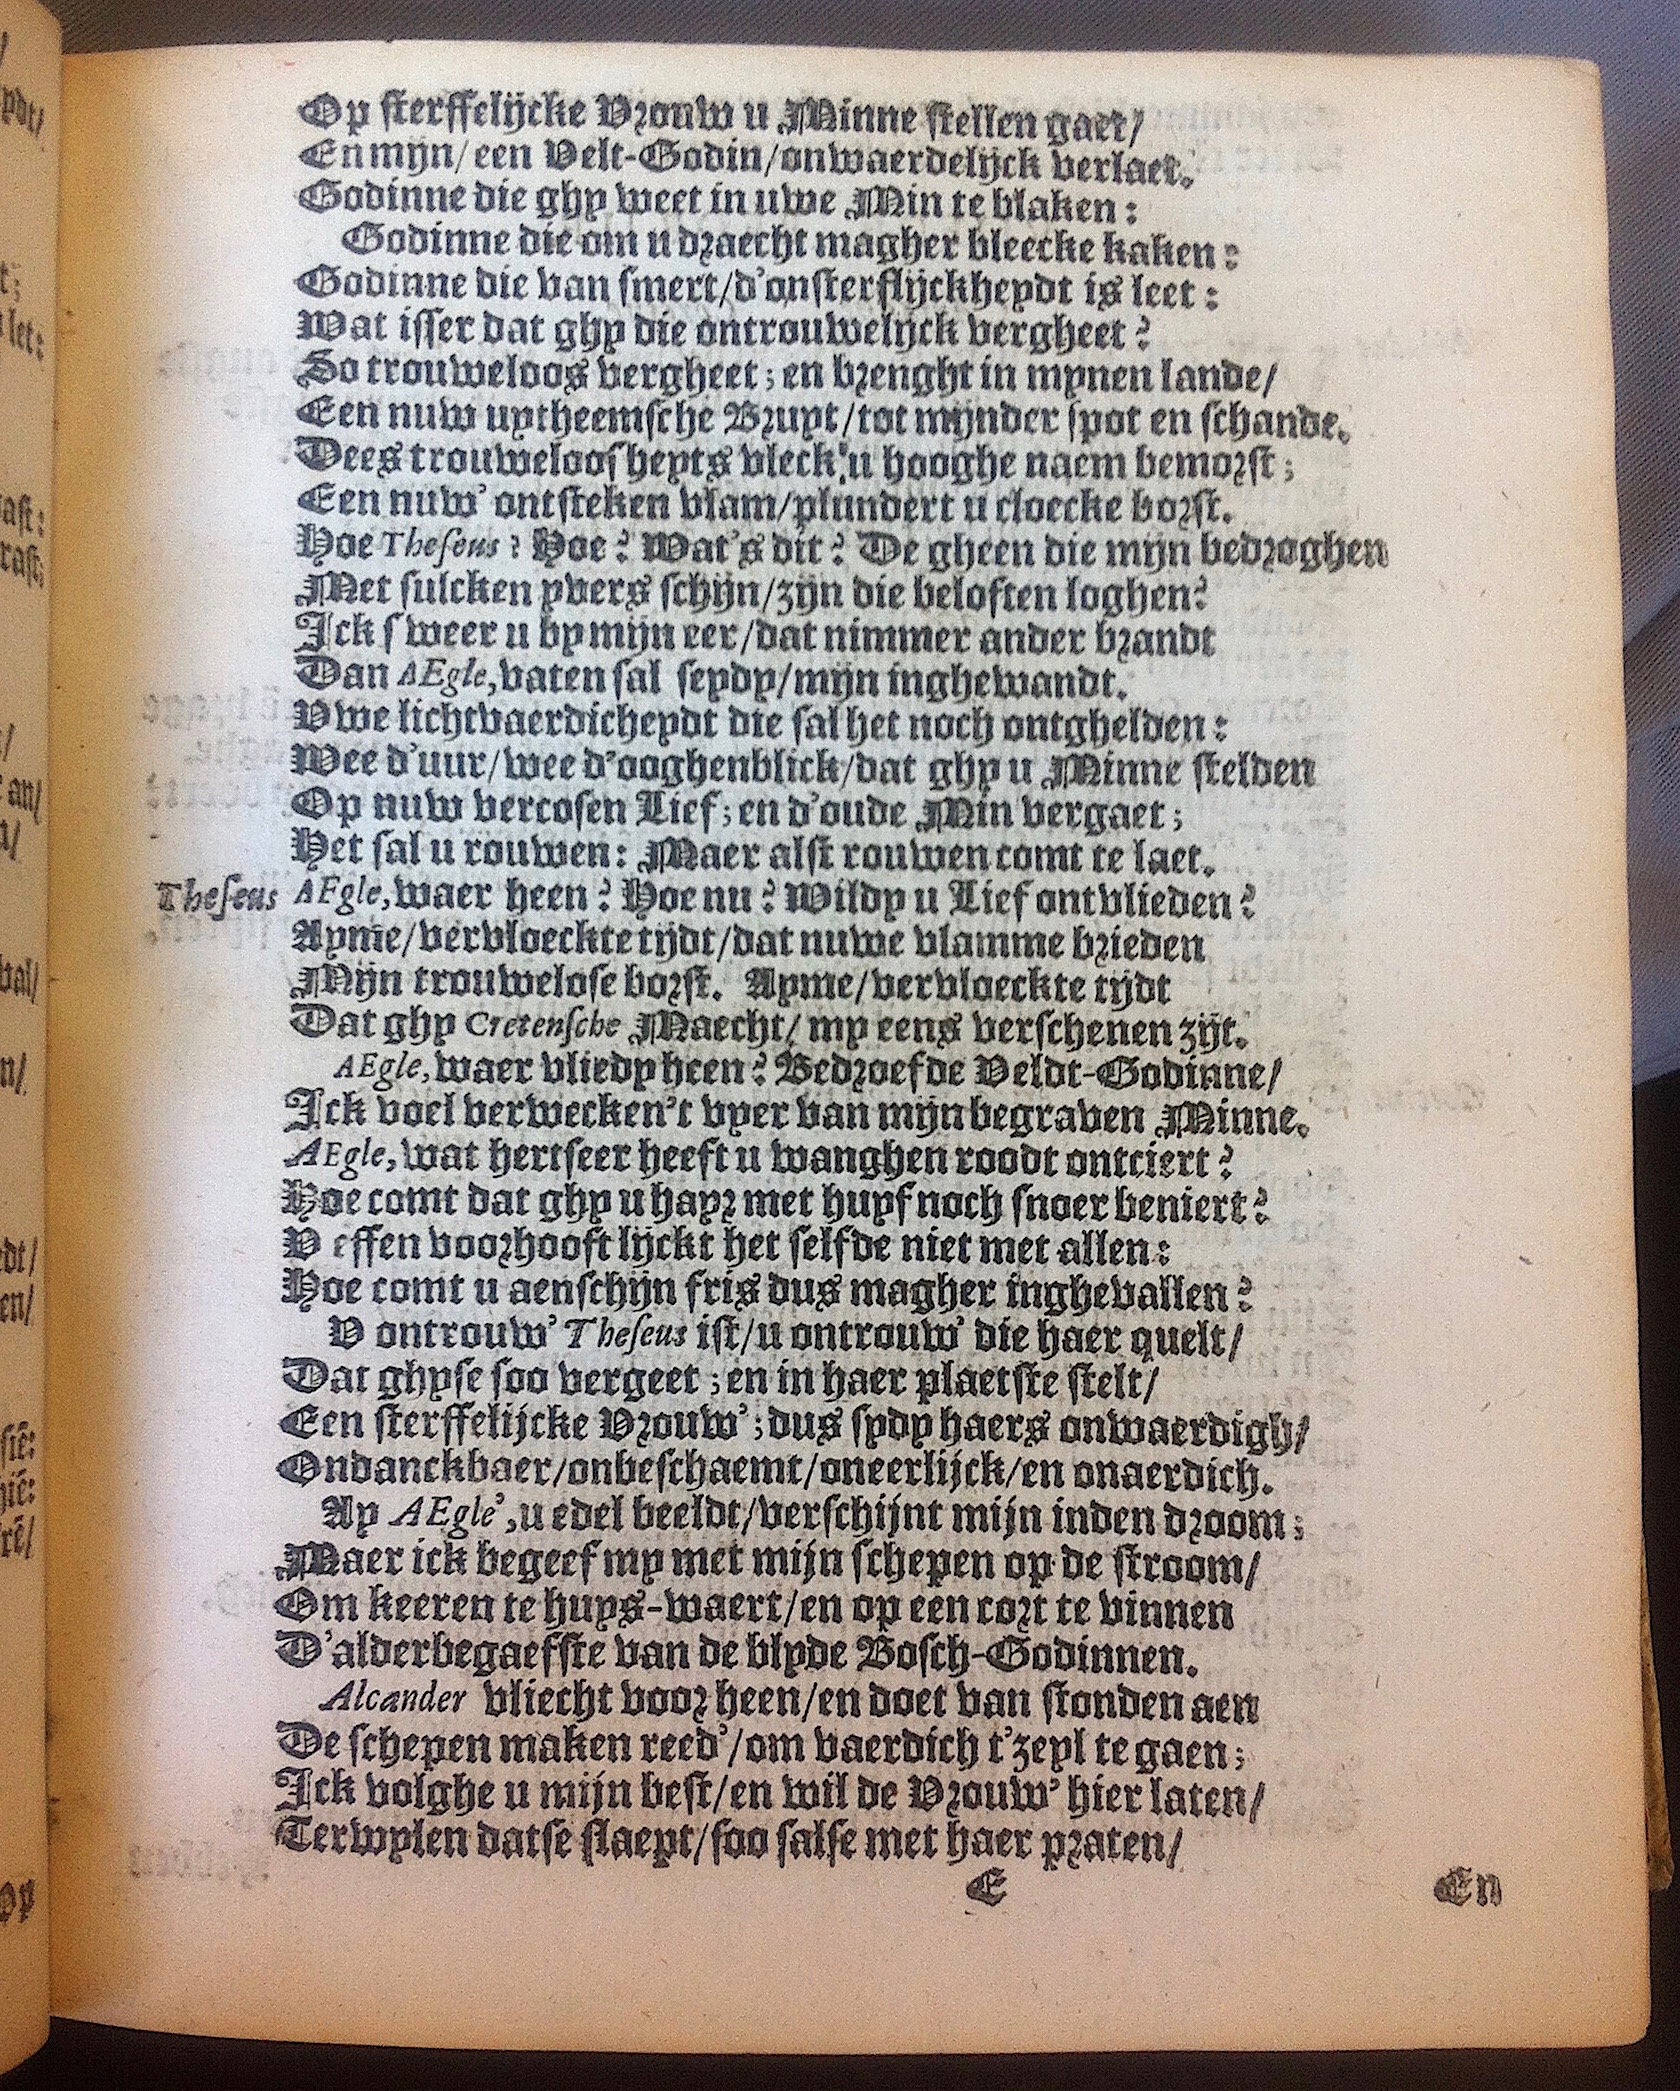 Op sterffelijcke Vrouw u Minne stellen gaet/
En mijn/ een Velt-Godin/onwaerdelijck verlaet.
Godinne die ghy weet in uwe Min te blaken:
Godinne die om u draecht magher bleecke kaken:
Godinne die van smert/d'onsterflijckheydt is leet:
Wat isser dat ghy die ontrouwelijck vergheet?
So trouweloos vergheet; en brenght in mynen lande/
Een nuw uytheemsche Bruyt/tot mijnder spot en schande.
Dees trouweloosheyts vleck/u hooghe naem bemorst;
Een nuw' ontsteken vlam/plundert u cloecke borst.
Hoe Theseus? Hoe? Wat's dit? De gheen die mijn bedroghen
Met sulcken yvers schijn/zijn die beloften loghen?
Ick sweer u by mijn eer/dat nimmer ander brandt
Dan AEgle, vaten sal seydy/mijn inghewandt.
Uwe lichtvaerdicheydt die sal het noch ontghelden:
Wee d'uur/wee d'ooghenblick/dat ghy u Minne stelden
Op nuw vercosen Lief; en d'oude Min vergaet;
Het sal u rouwen: Maer alst rouwen comt te laet.
Theseus AEgle, waer heen? Hoe nu? Wildy u Lief ontvlieden?
Ayme/vervloeckte tijdt/dat nuwe vlamme brieden
Mijn trouwelose borst. Ayme/vervloeckte tijdt
Dat ghy Cretensche Maecht/ my eens verschenen zijt.
AEgle, waer vliedy heen? Bedroefde Veldt-Godinne/
Ick voel verwecken't vyer van mijn begraven Minne.
AEgle, wat hertseer heeft u wanghen roodt ontciert?
Hoe comt dat ghy u hayr met huyf noch snoer beniert?
V effen voorhooft lijckt het selfde niet met allen:
Hoe comt u aenschijn fris dus magher inghevallen?
V ontrouw' Theseus ist/u ontrouw' die haer quelt/
Dat ghyse soo vergeet; en in haer plaetste stelt/
Een sterffelijcke Vrouw'; dus sydy haers onwaerdigh/
Ondanckbaer/onbeschaemt/oneerlijck/en onaerdich.
Ay AEgle', u edel beeldt/verschijnt mijn inden droom;
Maer ick begeef my met mijn schepen op de stroom/
Om keeren te huys-waert/en op een cort te vinnen
D'alderbegaefste van de blyde Bosch-Godinnen.
Alcander vliecht voor heen/en doet van stonden aen
De schepen maken reed'/om vaerdich t'zeyl te gaen;
Ick volghe u mijn best/en wil de Vrouw' hier laten/
Terwylen datse slaept/soo salse met haer praten/
E En